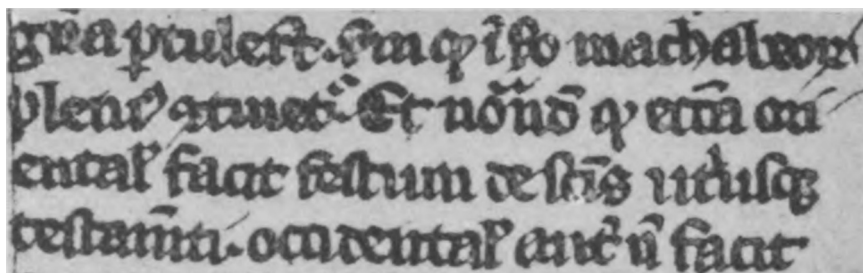 gr̃a ꝑtulest. s̃m qͥ ĩ sc̃do machabeoꝝ
pleniꝰ ꝯtinetᷣ. Et notand̃ ꝙ ecc̃ia ori
ental̃ facit festum de sc̃is utͥusqꝫ
testam̃ti. occidental̃ aut̃ ñ facit